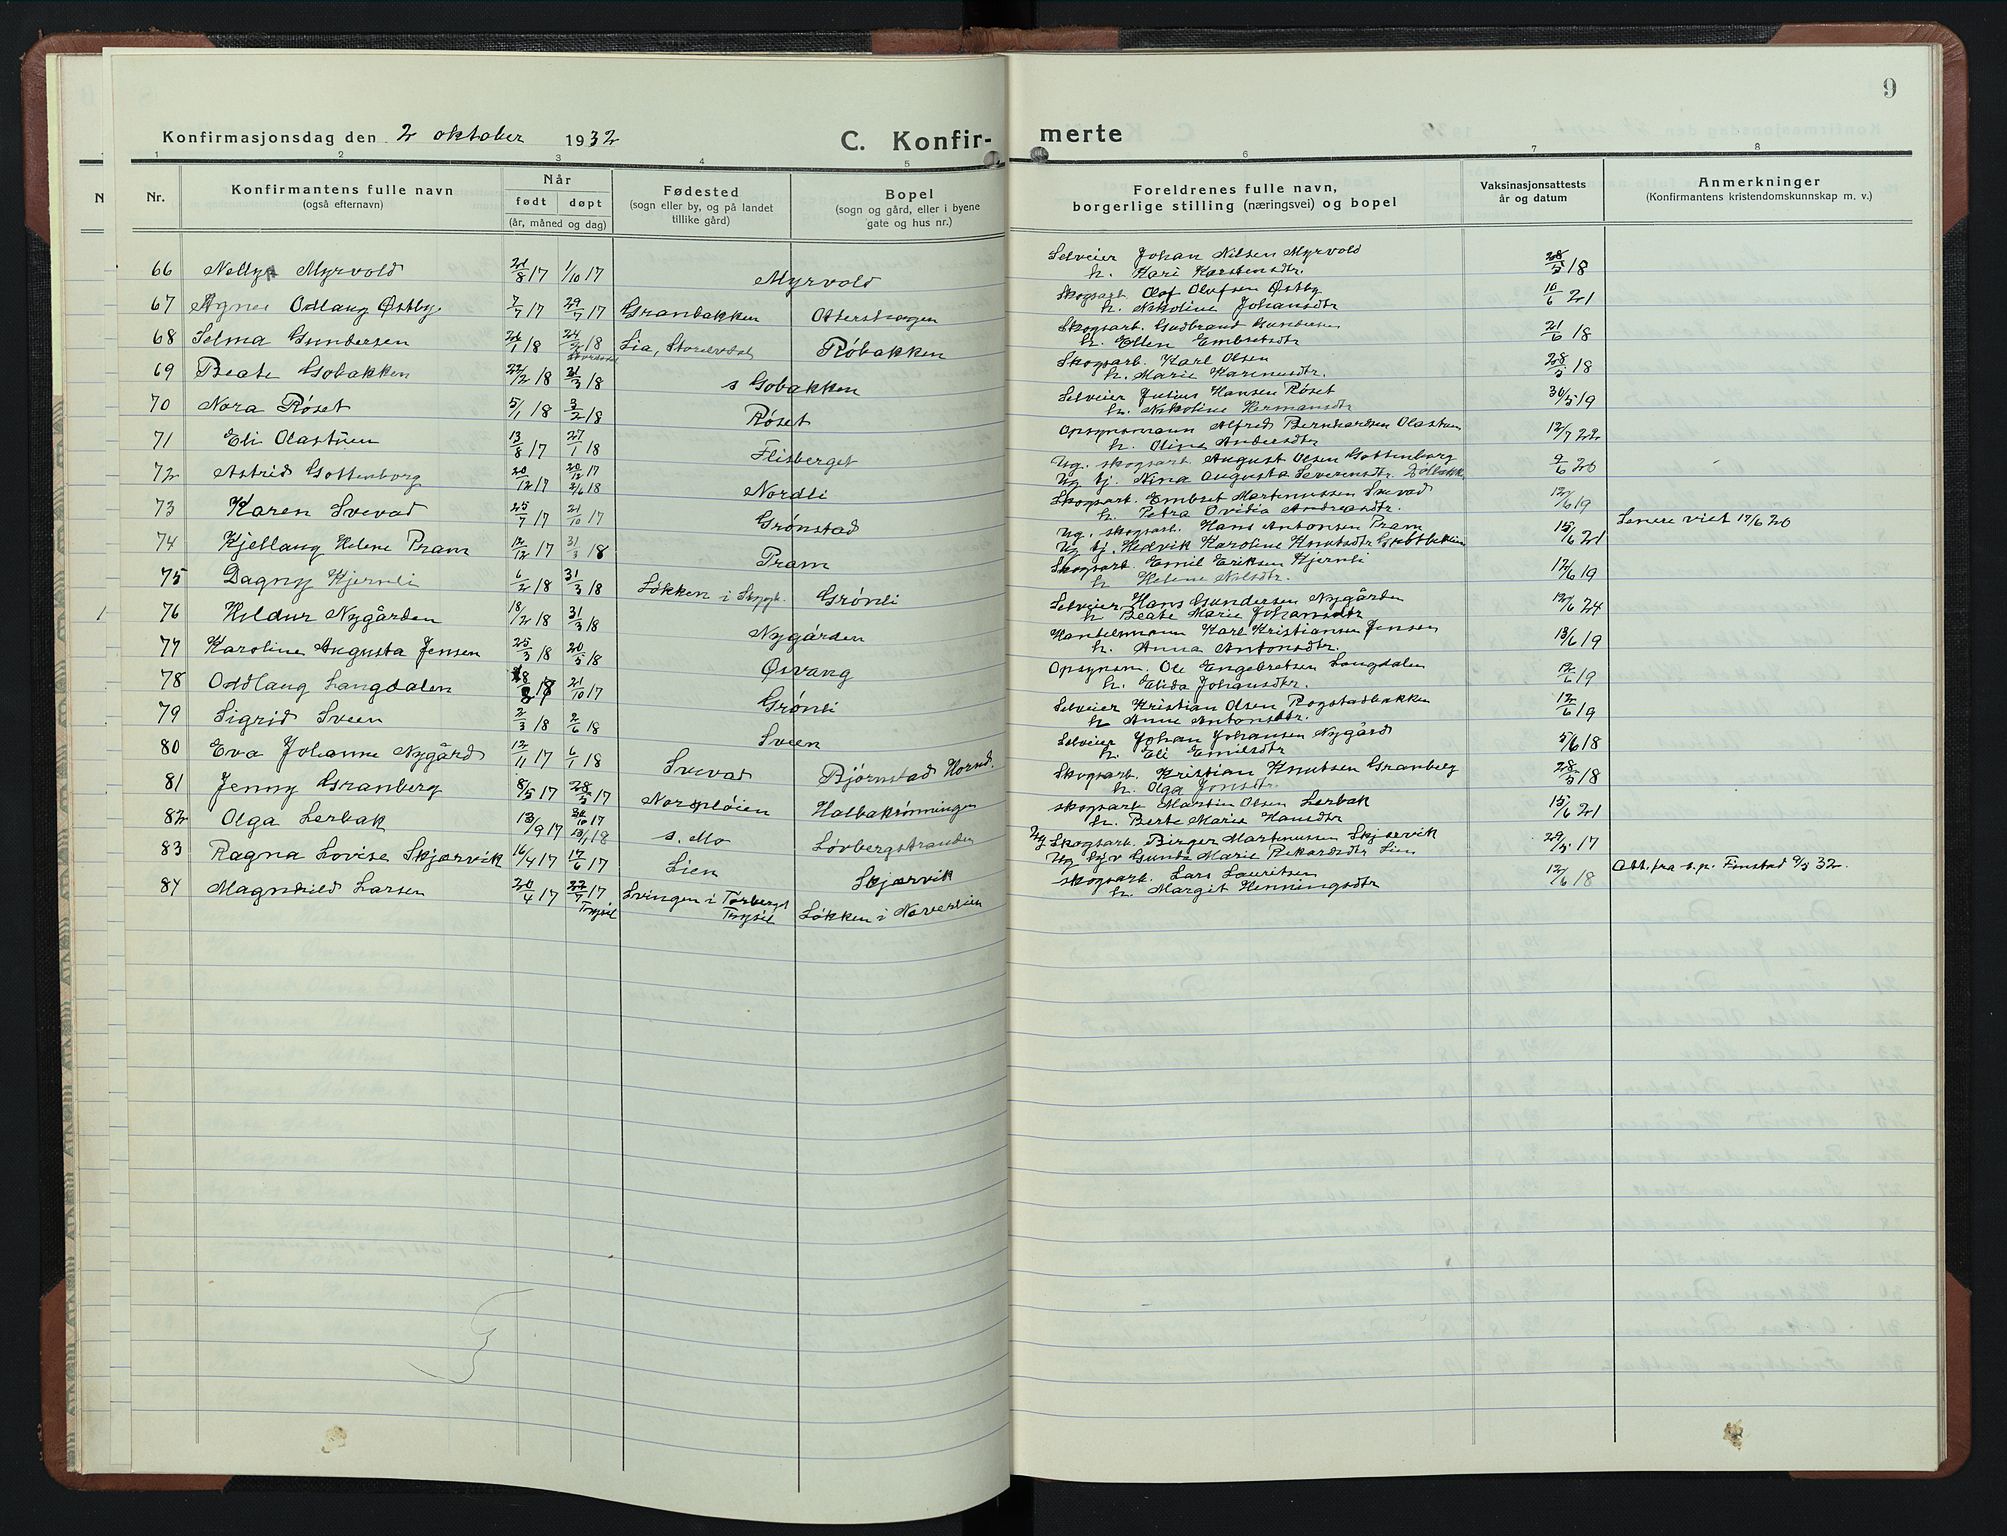 9
Konfirmasjonsdag den 2 oktober 1932
C. Konfir-
merte
1 2 3 4 5 6 7 8
Nr.
Konfirmantens fulle navn
(også efternavn)
Når
født døpt
(år, måned og dag)
Fødested
(sogn eller by, og på landet
tillike gård)
Bopel
(sogn og gård, eller i byene
gate og hus nr.)
Foreldrenes fulle navn,
borgerlige stilling (næringsvei) og bopel
Vaksinasjonsattests
år og datum
Anmerkninger
(Konfirmantens kristendomskunnskap m. v.)
66 Nelly Myrvold 21/8 17 1/10 17 Myrvold
Selveier Johan Nilsen Myrvold 28/5 18
h. Kari Karstensdtr.
67 Agnes Odlaug Østby 7/7 17 29/7 17 Granbakken
Skogsarb. Olaf Olafsen Østby 10/6 21
h. Nikoline Johansdtr
68 Selma Gundersen 26/1 18 24/2 18 Lia, Storelvdal Røbakken
Skogsarb. Gudbrand Gundersen 21/6 18
h. Ellen Embretsdtr
69 Beate Gobakken 22/2 18 31/3 18 s Gobakken
Skogsarb. Karl Olsen 28/5 18
h. Marie Karenusdtr.
70 Nora Røset 5/1 18 3/2 18 Røset
Selveier Julius Hansen Røset 30/5 19
h. Nikoline Hermansdtr
71 Eli Olastuen 13/8 17 27/1 18 Flisberget
Opsynsmann Alfred Bernhardsen Olastuen 12/7 22
h. Olina Andersdtr
72 Astrid Gottenborg 20/12 17 20/12 17 2/6 18 Nordli
Ug. skogsarb. August Olsen Gottenborg 9/6 20
Ug tj. Nina Augusta Severensdtr.
73 Karen Svevad 25/7 17 21/10 17 Grønstad
Skogsarb. Embret Martinussen Svevad 12/6 19
h. Petra Ovidia Andreasdtr.
74 Kjellaug Helene Pram 12/12 17 31/3 18 Pram
Ug. skogsarb. Hans Antonsen Pram 15/6 21 Senere viet 17/6 20
Ug tj. Hedvik Karoline Knutsdtr
75 Dagny Kjernli 6/2 18 31/3 18 Løkken i Skogb. Grønli
Skogsarb. Emil Eriksen Kjernli 12/6 19
h Helene Nilsdtr.
76 Hildur Nygården 18/2 18 31/3 18 Nygården
Selveier Hans Gundersen Nygården 12/6 24
h Beate Marie Johansdtr
77 Karoline Augusta Jensen 25/3 18 20/5 18 Øsvang
Handelsmann Karl Kristiansen Jensen 13/6 19
h. Anna Antonsdtr.
78 Oddlaug Langdalen 21/10 17 Grønli
Opsynsm. Ole Engebretsen Langdalen 12/6 19
h. Elida Johansdtr.
79 Sigrid Sveen 2/3 18 2/6 18 Sveen
Selveier Kristian Olsen Rogstadbakken 12/6 19
h Anne Antonsdtr.
80 Eva Johanne Nygård 12/11 17 6/1 18 Svevad Bjørnstad Nord.
Selveier Johan Johansen Nygård 5/6 18
h. Eli Emilsdtr
81 Jenny Granberg 8/5 17 28/5 17 Norspløien Halbakrønningen
Skogsarb. Kristian Knutsen Granberg 28/5 18
h. Olga Jonsdtr.
82 Olga Lerbak 13/9 17 30/10 17 13/1 18 s. Mo Løvbergstranden
skogsarb Martin Olsen Lerbak 15/6 21
h. Berte Marie Hansdtr
83 Ragna Lovise Skjærvik 16/4 17 17/6 17 Lien Skjærvik
Ug Skogsarb. Birger Martinussen Skjærvik 29/5 17
Ug tj. Gunda Marie Rikardsdtr Lien
84 Magnhild Larsen 20/4 17 22/7 17 Trysil Svingen i Tørberget Trysil Løkken i Norderlien
skogsarb. Lars Lauritsen 12/6 18 Att. fra s.p. Finstad 9/5 32.
h. Margit Henningsdtr